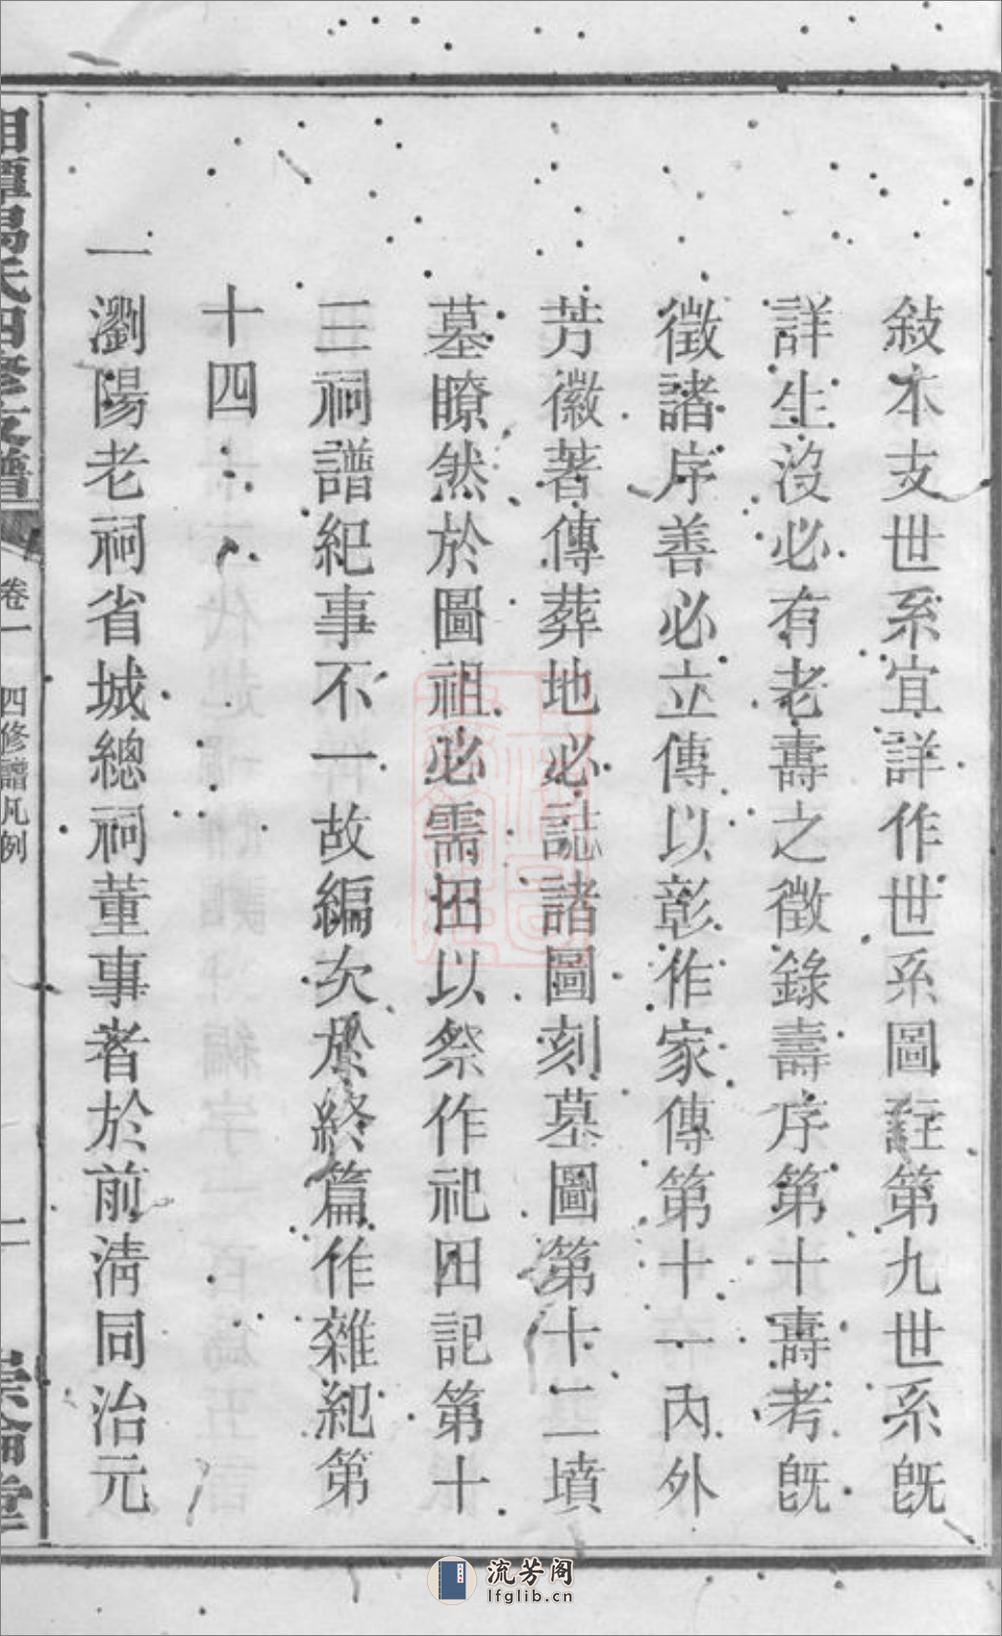 敍本支世系宜詳作世系圖註第九世系既
詳生沒必有老壽之徵錄壽序第十壽考既
徵諸序善必立傳以彰作家傳第十一內外
芳徽著傳葬地必誌諸圖刻墓圖第十二墳
墓瞭然於圖祖必需田以祭作祀田記第十
三祠譜紀事不一故編次於終篇作雜紀第
十四
一瀏陽老祠省城總祠董事者於前清同治元
卷一 四修譜凡例
二
流芳阁
lfglib.cn